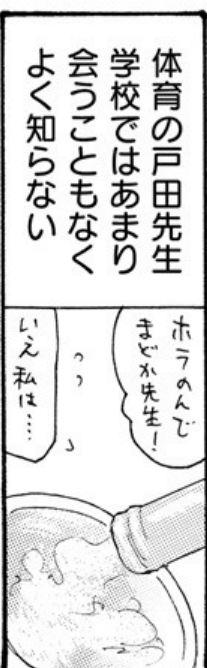 体育の戸田先生
学校ではあまり
会うこともなく
よく知らない
ホラのんで
まどか先生!
いえ私は…